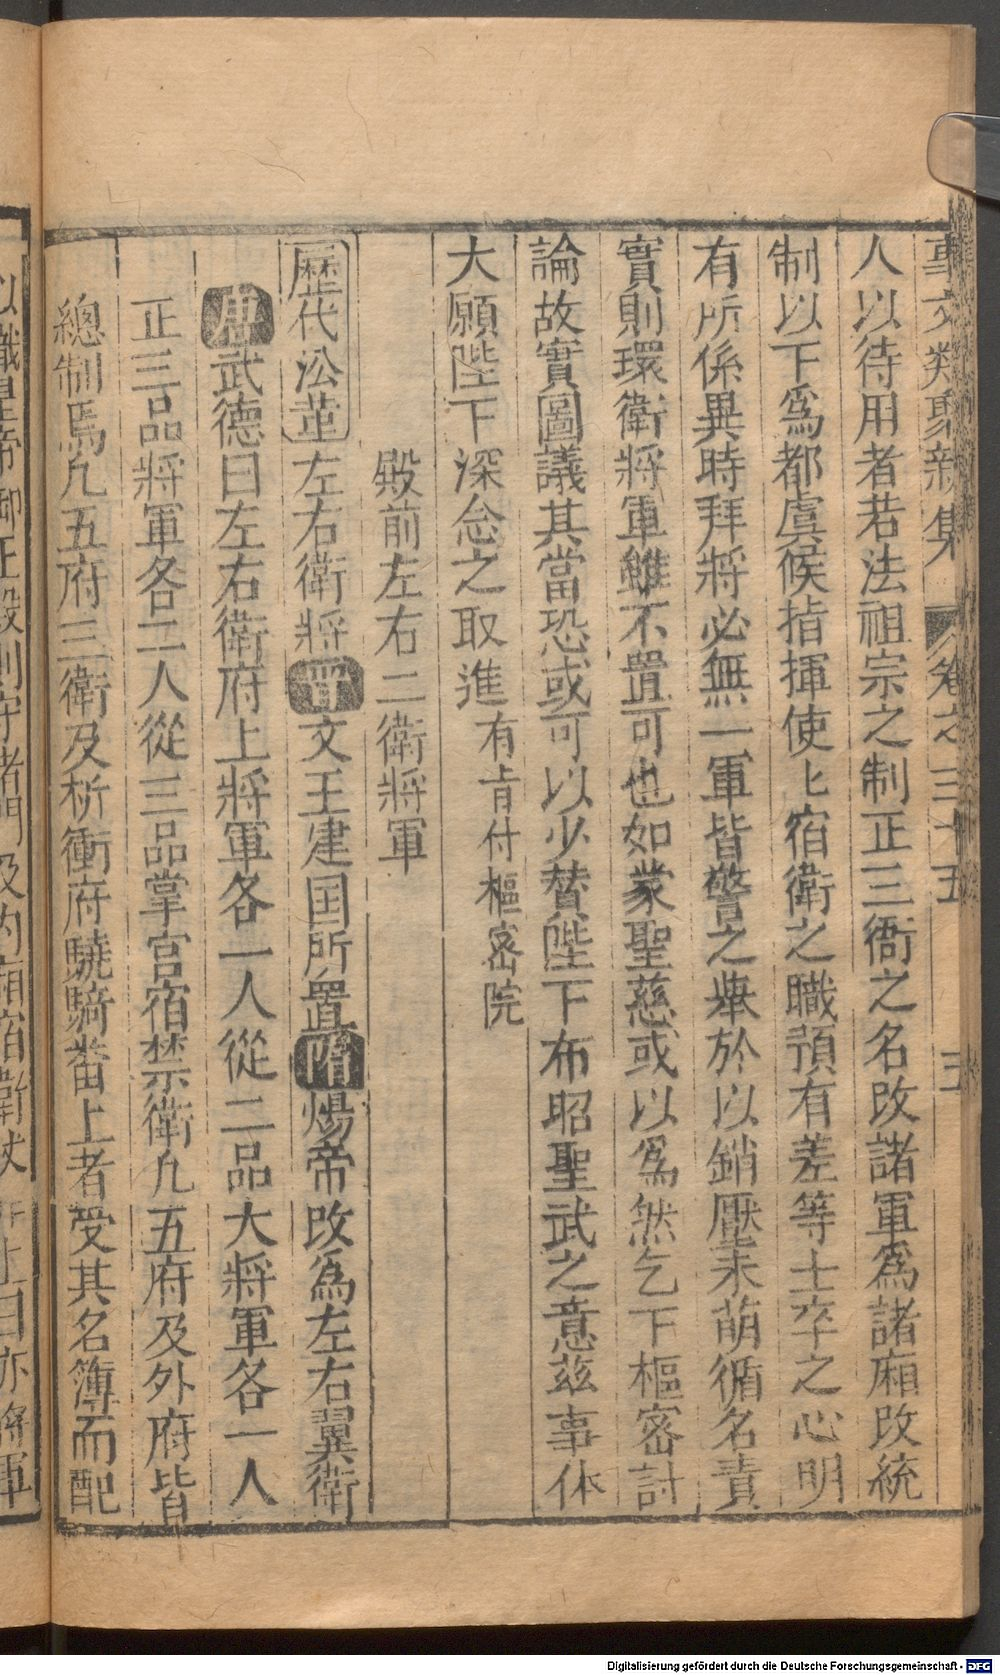 事文類聚新集 卷之三十五 三
人以待用者若法祖宗之制正三衙之名改諸軍為諸廂改統
制以下爲都虞候指揮使上宿衛之職預有差等士卒之心明
有所係異時拜將必無一軍皆警之舉於以銷壓未萌循名責
實則環衛將軍雖不置可也如蒙聖慈或以爲然乞下樞密討
論故實圖議其當恐或可以少替陛下布昭聖武之意茲事体
大願陛下深念之取進 有肯付樞密院
殿前左右二衛將軍
歷代㳂革 左右衛將晉文王建国所置隋煬帝改爲左右翼衛
唐武德曰左右衛府上將軍各一人從二品大將軍各一人
正三品將軍各二人從三品掌宮宿禁衛凢五府及外府皆
總制焉凢五府三衛及折衝府驍騎畨上者受其名簿而配
帝御正殿則守諸門及内廂宿衛仗
曰亦將軍
Digitalisierung gefördert durch die Deutsche Forschungsgemeinschaft - DFG